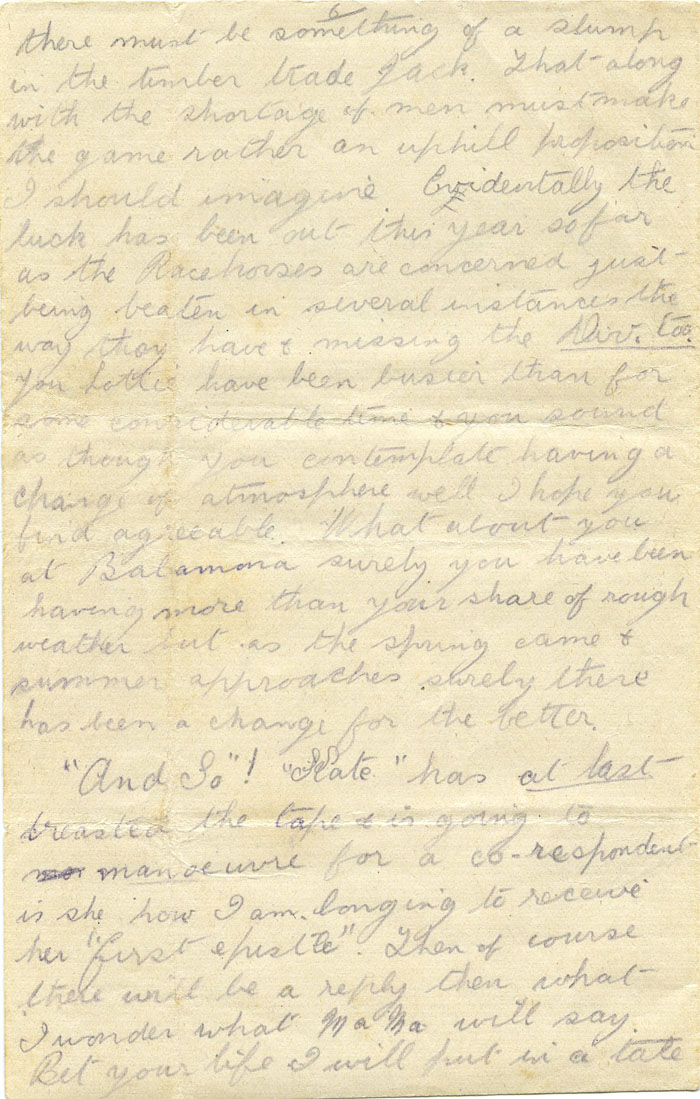 6
there must be something of a slump
in the timber trade Jack. That along
with the shortage of men must make
the game rather an uphill proposition
I should imagine. Evidentally the
luck has been out this year so far
as the Racehorses are concerned just
being beaten in several instances the
way they have & missing the Div. too.
You Lottie have been busier than for
some considerable time & you sound
as though you contemplate having a
change of atmosphere well I hope you
find agreeable. What about you
at Balamona surely you have been
having more than your share of rough
weather but as the spring came &
summer approaches surely there
has been a change for the better.
"And So"! "Kate" has at last
breasted the tape & is going to
manoeuvre for a co-respondent
is she how I am longing to receive
her "first epistle". Then of course
there will be a reply then what
I wonder what Ma Ma will say.
Bet your life I will put in a tale